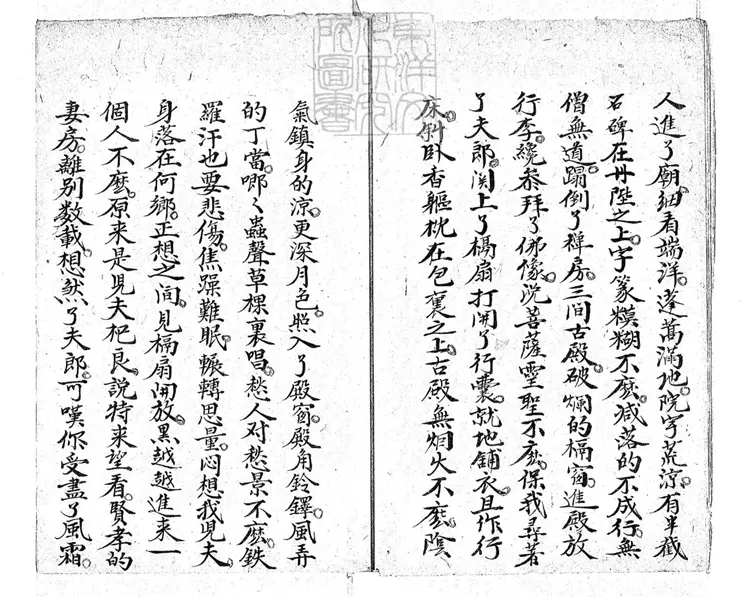 東洋文
化研究
所圖書
人進了廟。細看端洋。蓬蒿滿地。院宇荒涼。有半截
石碑在丹陛之上。字篆糢糊不庅。减落的不成行。無
僧無道。蹋倒了禅房。三间古殿。破爛的槅窗。進殿放
行李。纔叅拜了佛像。説菩薩霊聖不庅。保我尋着
了夫郎。関上了槅扇打開了行囊。就地鋪衣且作行
床。斜卧香軀枕在包裹之上。古殿無烟火不庅。陰
氣鎮身的凉。更深月色。照入了殿窗。殿角鈴鐸風弄
的丁當。唧〻蟲聲草棵裏唱。愁人对愁景不庅。鉄
羅汗也要悲傷。焦躁難眠。輾轉思量。闷想我児夫。
身落在何鄉。正想之间。見槅扇開放。黑越越進来一
個人不庅。原来是児夫杞良。説特来望看。賢孝的
妻房。離别数載。想煞了夫郎。可嘆你受盡了風霜。